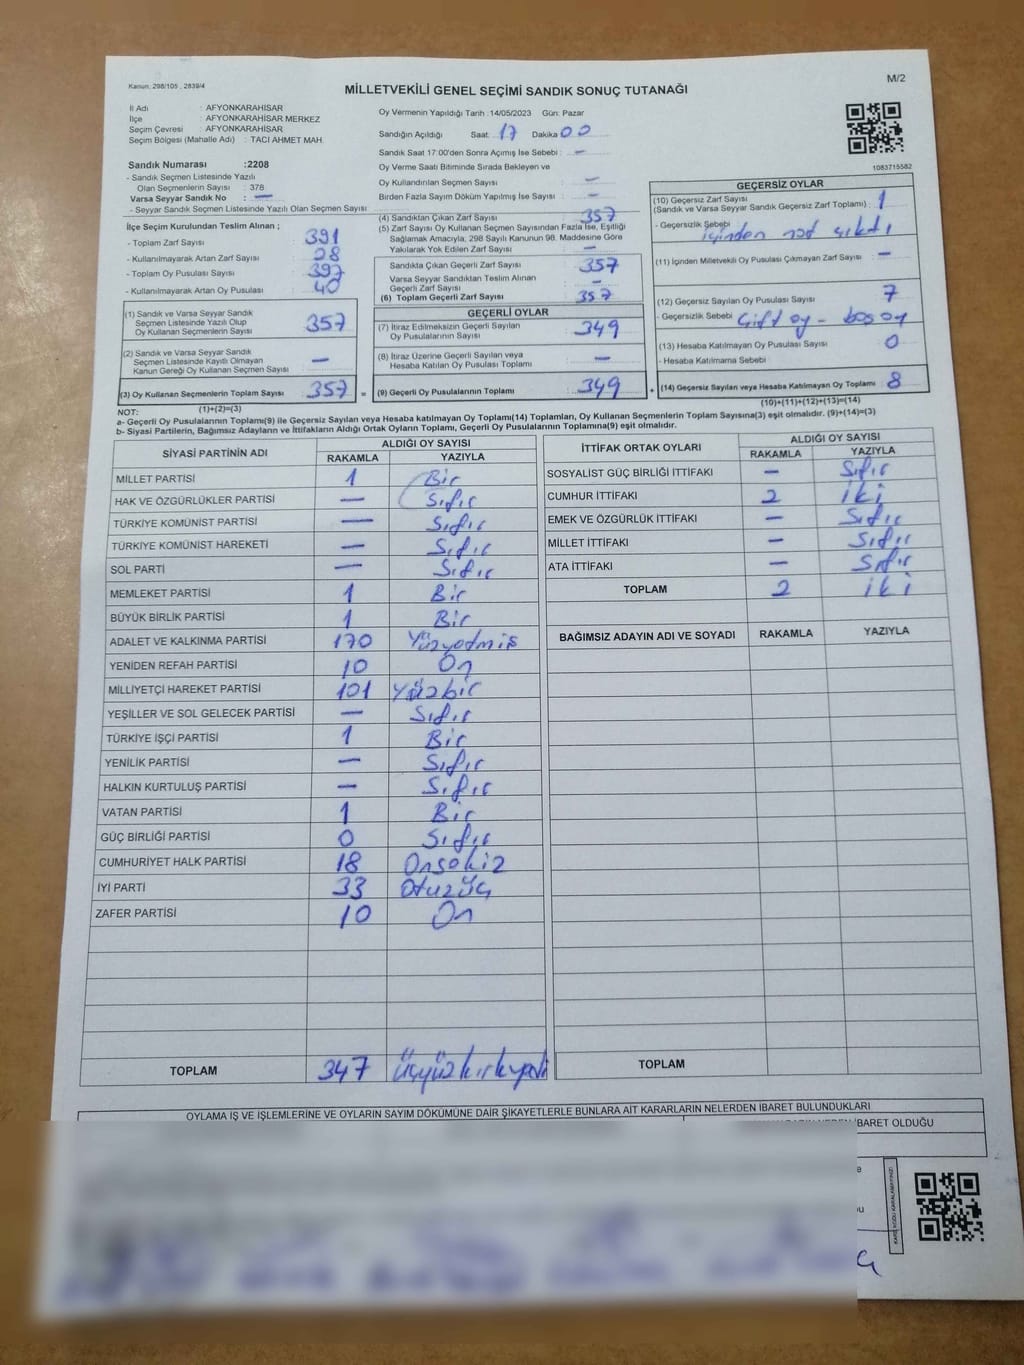 Kanun: 298/105 , 2839/4
M/2
MİLLETVEKİLİ GENEL SEÇİMİ SANDIK SONUÇ TUTANAĞI
İl Adı : AFYONKARAHİSAR
İlçe : AFYONKARAHİSAR MERKEZ
Seçim Çevresi : AFYONKARAHİSAR
Seçim Bölgesi (Mahalle Adı) : TACI AHMET MAH.
Oy Vermenin Yapıldığı Tarih :14/05/2023 Gün: Pazar
Sandığın Açıldığı Saat: 17 Dakika 00
Sandık Saat 17:00'den Sonra Açılmış İse Sebebi : —
Oy Verme Saati Bitiminde Sırada Bekleyen ve
Oy Kullandırılan Seçmen Sayısı —
Birden Fazla Sayım Döküm Yapılmış İse Sayısı : —
1083715582
Sandık Numarası :2208
- Sandık Seçmen Listesinde Yazılı
Olan Seçmenlerin Sayısı : 378
Varsa Seyyar Sandık No : —
- Seyyar Sandık Seçmen Listesinde Yazılı Olan Seçmen Sayısı
İlçe Seçim Kurulundan Teslim Alınan ;
- Toplam Zarf Sayısı 391
- Kullanılmayarak Artan Zarf Sayısı : 28
- Toplam Oy Pusulası Sayısı : 397
- Kullanılmayarak Artan Oy Pusulası : 40
(1) Sandık ve Varsa Seyyar Sandık
Seçmen Listesinde Yazılı Olup
Oy Kullanan Seçmenlerin Sayısı 357
(2) Sandık ve Varsa Seyyar Sandık
Seçmen Listesinde Kayıtlı Olmayan
Kanun Gereği Oy Kullanan Seçmen Sayısı —
(3) Oy Kullanan Seçmenlerin Toplam Sayısı 357
(1)+(2)=(3)
(4) Sandıktan Çıkan Zarf Sayısı : 357
(5) Zarf Sayısı Oy Kullanan Seçmen Sayısından Fazla İse, Eşitliği
Sağlamak Amacıyla, 298 Sayılı Kanunun 98. Maddesine Göre
Yakılarak Yok Edilen Zarf Sayısı : —
Sandıkta Çıkan Geçerli Zarf Sayısı : 357
Varsa Seyyar Sandıktan Teslim Alınan
Geçerli Zarf Sayısı : —
(6) Toplam Geçerli Zarf Sayısı : 357
GEÇERLİ OYLAR
(7) İtiraz Edilmeksizin Geçerli Sayılan
Oy Pusulalarının Sayısı : 349
(8) İtiraz Üzerine Geçerli Sayılan veya
Hesaba Katılan Oy Pusulası Toplamı : —
= (9) Geçerli Oy Pusulalarının Toplamı : 349
GEÇERSİZ OYLAR
(10) Geçersiz Zarf Sayısı
(Sandık ve Varsa Seyyar Sandık Geçersiz Zarf Toplamı) : 1
- Geçersizlik Sebebi : içinden not çıktı
(11) İçinden Milletvekili Oy Pusulası Çıkmayan Zarf Sayısı : —
(12) Geçersiz Sayılan Oy Pusulası Sayısı : 7
- Geçersizlik Sebebi : Çift oy - boş oy
(13) Hesaba Katılmayan Oy Pusulası Sayısı : 0
- Hesaba Katılmama Sebebi :
+ (14) Geçersiz Sayılan veya Hesaba Katılmayan Oy Toplamı : 8
(10)+(11)+(12)+(13)=(14)
NOT:
a- Geçerli Oy Pusulalarının Toplamı(9) ile Geçersiz Sayılan veya Hesaba katılmayan Oy Toplamı(14) Toplamları, Oy Kullanan Seçmenlerin Toplam Sayısına(3) eşit olmalıdır. (9)+(14)=(3)
b- Siyasi Partilerin, Bağımsız Adayların ve İttifakların Aldığı Ortak Oyların Toplamı, Geçerli Oy Pusulalarının Toplamına(9) eşit olmalıdır.
SİYASİ PARTİNİN ADI ALDIĞI OY SAYISI
RAKAMLA YAZIYLA
MİLLET PARTİSİ 1 Bir
HAK VE ÖZGÜRLÜKLER PARTİSİ — Sıfır
TÜRKİYE KOMÜNİST PARTİSİ — Sıfır
TÜRKİYE KOMÜNİST HAREKETİ — Sıfır
SOL PARTİ — Sıfır
MEMLEKET PARTİSİ 1 Bir
BÜYÜK BİRLİK PARTİSİ 1 Bir
ADALET VE KALKINMA PARTİSİ 170 Yüzyetmiş
YENİDEN REFAH PARTİSİ 10 On
MİLLİYETÇİ HAREKET PARTİSİ 101 Yüzbir
YEŞİLLER VE SOL GELECEK PARTİSİ — Sıfır
TÜRKİYE İŞÇİ PARTİSİ 1 Bir
YENİLİK PARTİSİ — Sıfır
HALKIN KURTULUŞ PARTİSİ — Sıfır
VATAN PARTİSİ 1 Bir
GÜÇ BİRLİĞİ PARTİSİ 0 Sıfır
CUMHURİYET HALK PARTİSİ 18 Onsekiz
İYİ PARTİ 33 Otuzüç
ZAFER PARTİSİ 10 On
TOPLAM 347 Üçyüzkırkyedi
İTTİFAK ORTAK OYLARI ALDIĞI OY SAYISI
RAKAMLA YAZIYLA
SOSYALİST GÜÇ BİRLİĞİ İTTİFAKI — Sıfır
CUMHUR İTTİFAKI 2 iki
EMEK VE ÖZGÜRLÜK İTTİFAKI — Sıfır
MİLLET İTTİFAKI — Sıfır
ATA İTTİFAKI — Sıfır
TOPLAM 2 iki
BAĞIMSIZ ADAYIN ADI VE SOYADI RAKAMLA YAZIYLA
TOPLAM
OYLAMA İŞ VE İŞLEMLERİNE VE OYLARIN SAYIM DÖKÜMÜNE DAİR ŞİKAYETLERLE BUNLARA AİT KARARLARIN NELERDEN İBARET BULUNDUKLARI
İBARET OLDUĞU